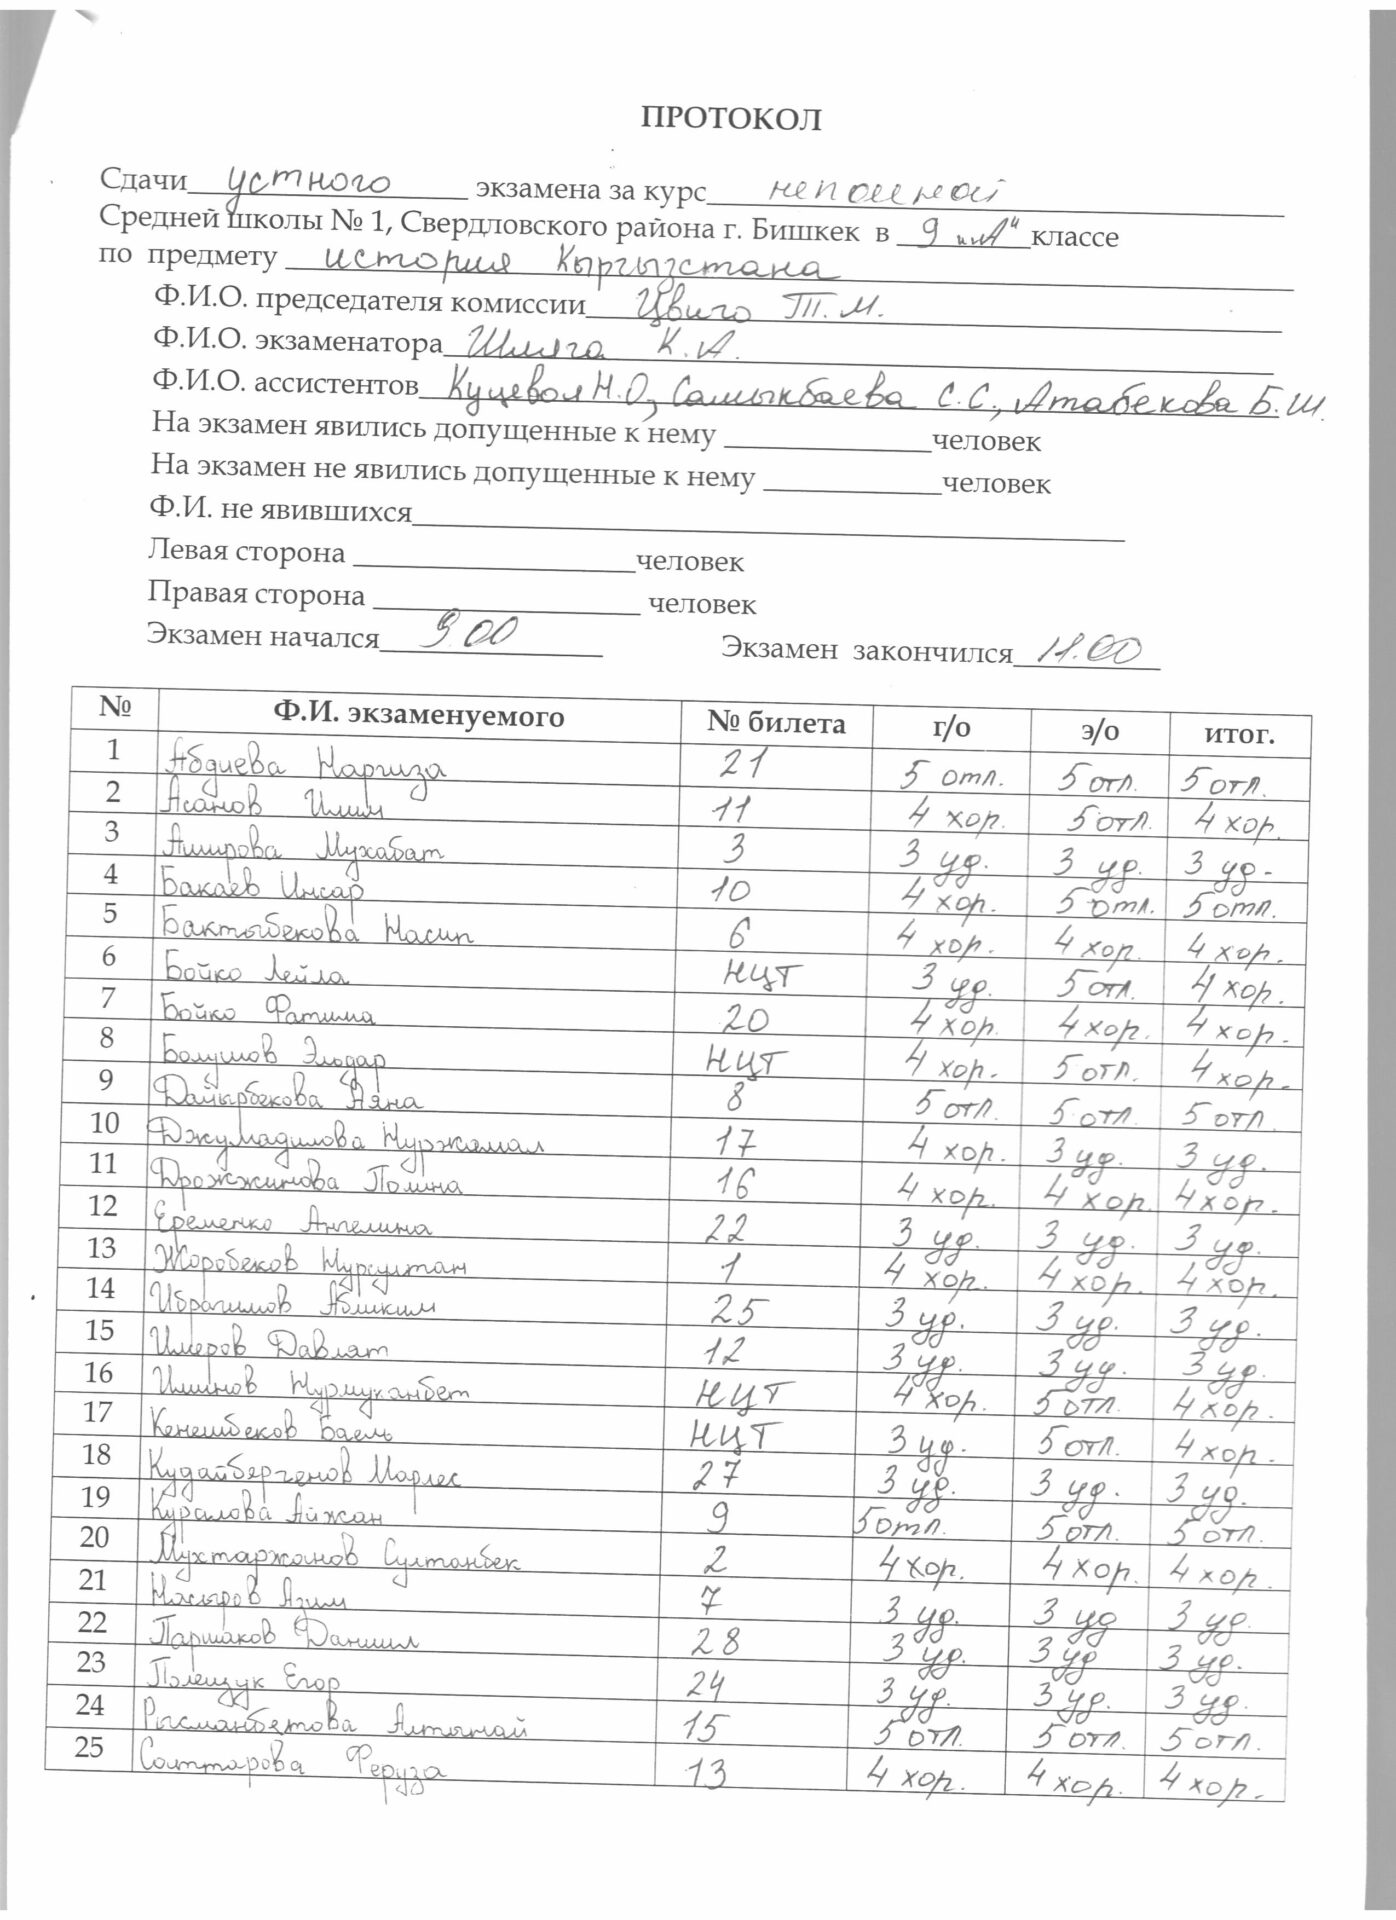 ПРОТОКОЛ
Сдачи устного экзамена за курс неполной
Средней школы № 1, Свердловского района г. Бишкек в 9 "А" классе
по предмету история Кыргызстана
Ф.И.О. председателя комиссии Цвиго Т.М.
Ф.И.О. экзаменатора Шляга К.А.
Ф.И.О. ассистентов Куцевол Н.О, Самыкбаева С.С., Атабекова Б.Ш.
На экзамен явились допущенные к нему человек
На экзамен не явились допущенные к нему человек
Ф.И. не явившихся
Левая сторона человек
Правая сторона человек
Экзамен начался 9.00 Экзамен закончился 11.00
№ Ф.И. экзаменуемого № билета г/о э/о итог.
1 Абдиева Наргиза 21 5 отл. 5 отл. 5 отл.
2 Асанов Илим 11 4 хор. 5 отл. 4 хор.
3 Амирова Мухабат 3 3 уд. 3 уд. 3 уд.
4 Бакаев Инсар 10 4 хор. 5 отл. 5 отл.
5 Бактыбекова Насип 6 4 хор. 4 хор. 4 хор.
6 Бойко Лейла НЦТ 3 уд. 5 отл. 4 хор.
7 Бойко Фатима 20 4 хор. 4 хор. 4 хор.
8 Болушов Эльдар НЦТ 4 хор. 5 отл. 4 хор.
9 Дайырбекова Аяна 8 5 отл. 5 отл. 5 отл.
10 Джумадилова Нуржамал 17 4 хор. 3 уд. 3 уд.
11 Дрожжинова Полина 16 4 хор. 4 хор. 4 хор.
12 Еременко Ангелина 22 3 уд. 3 уд. 3 уд.
13 Жоробеков Нурсултан 1 4 хор. 4 хор. 4 хор.
14 Ибрагимов Абликим 25 3 уд. 3 уд. 3 уд.
15 Имеров Давлят 12 3 уд. 3 уд. 3 уд.
16 Нурмуканбет НЦТ 4 хор. 5 отл. 4 хор.
17 Кенешбеков Баель НЦТ 3 уд. 5 отл. 4 хор.
18 Кудайбергенов Марлес 27 3 уд. 3 уд. 3 уд.
19 Куралова Айжан 9 5 отл. 5 отл. 5 отл.
20 Мухтаржанов Султанбек 2 4 хор. 4 хор. 4 хор.
21 Насыров Азим 7 3 уд. 3 уд 3 уд.
22 Паршаков Даниил 28 3 уд. 3 уд 3 уд.
23 Полещук Егор 24 3 уд. 3 уд. 3 уд.
24 Рысманбетова Алтынай 15 5 отл. 5 отл. 5 отл.
25 Саттарова Феруза 13 4 хор. 4 хор. 4 хор.